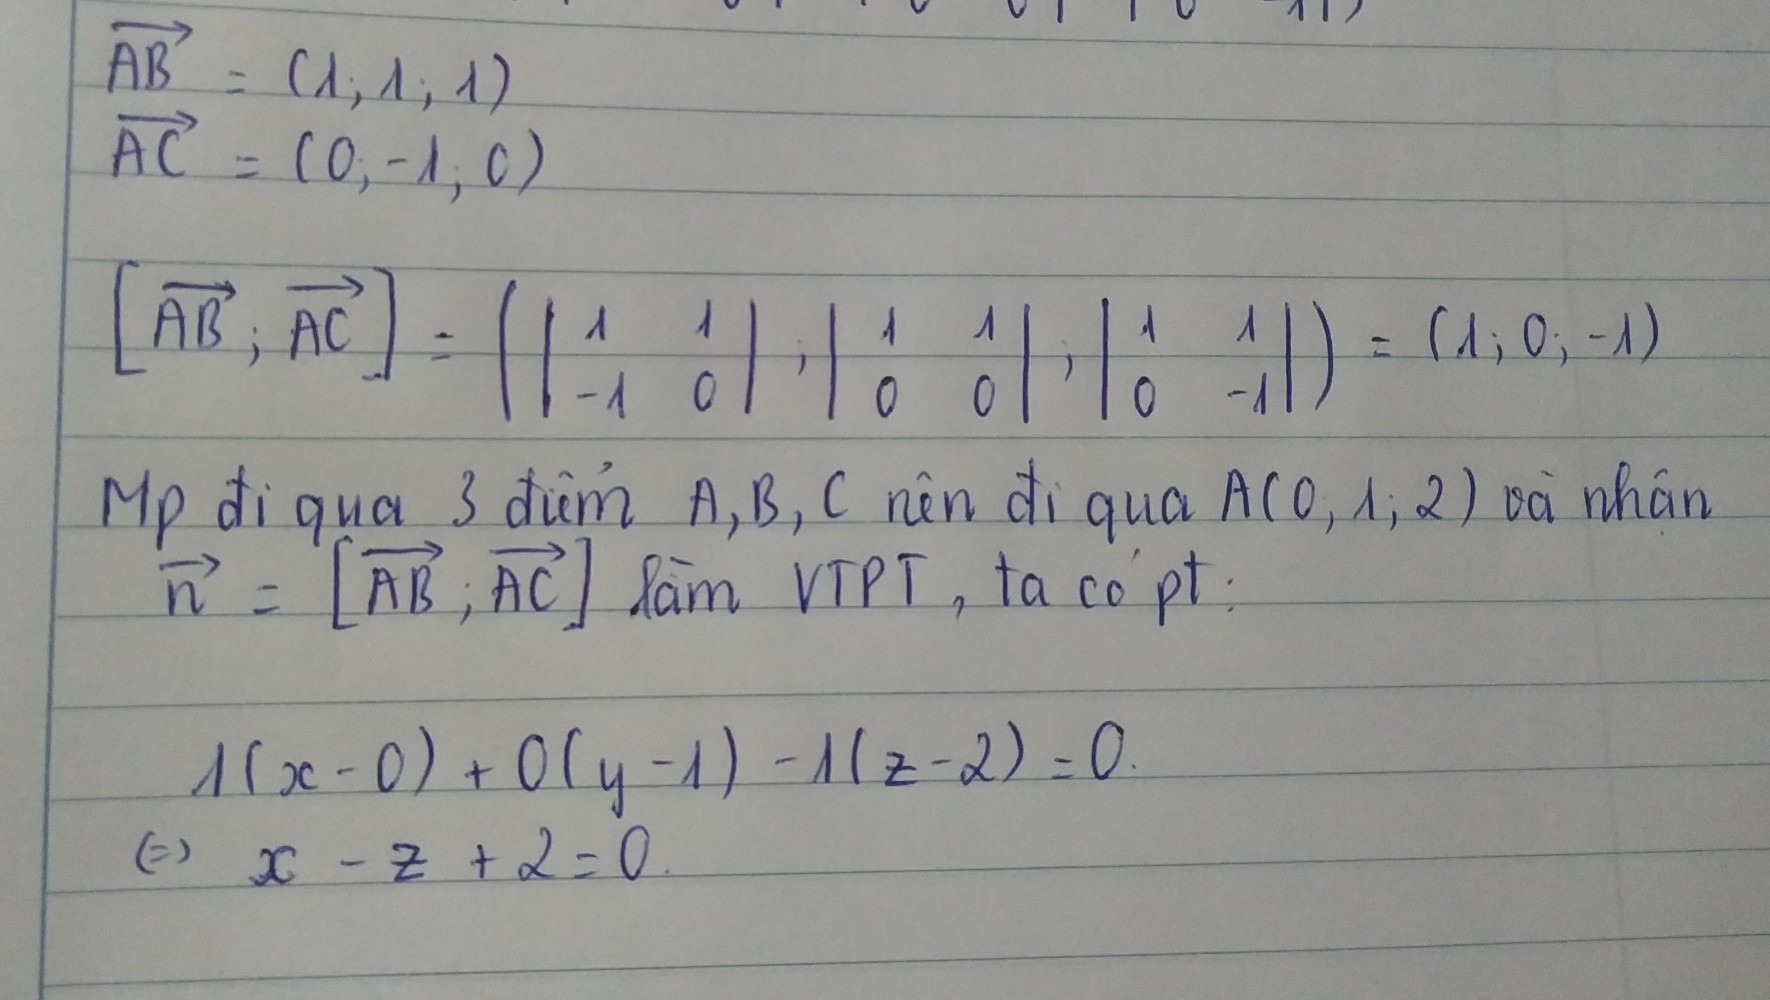 AB→ = (1; 1; 1)
AC→ = (0; -1; 0)
[AB→; AC→] = (|1 1; -1 0|; |1 1; 0 0|; |1 1; 0 -1|) = (1; 0; -1)
Mp đi qua 3 điểm A, B, C nên đi qua A(0; 1; 2) và nhận
n→ = [AB→; AC→] làm VTPT, ta có pt:
1(x-0) + 0(y-1) -1(z-2) = 0.
(=) x - z + 2 = 0.